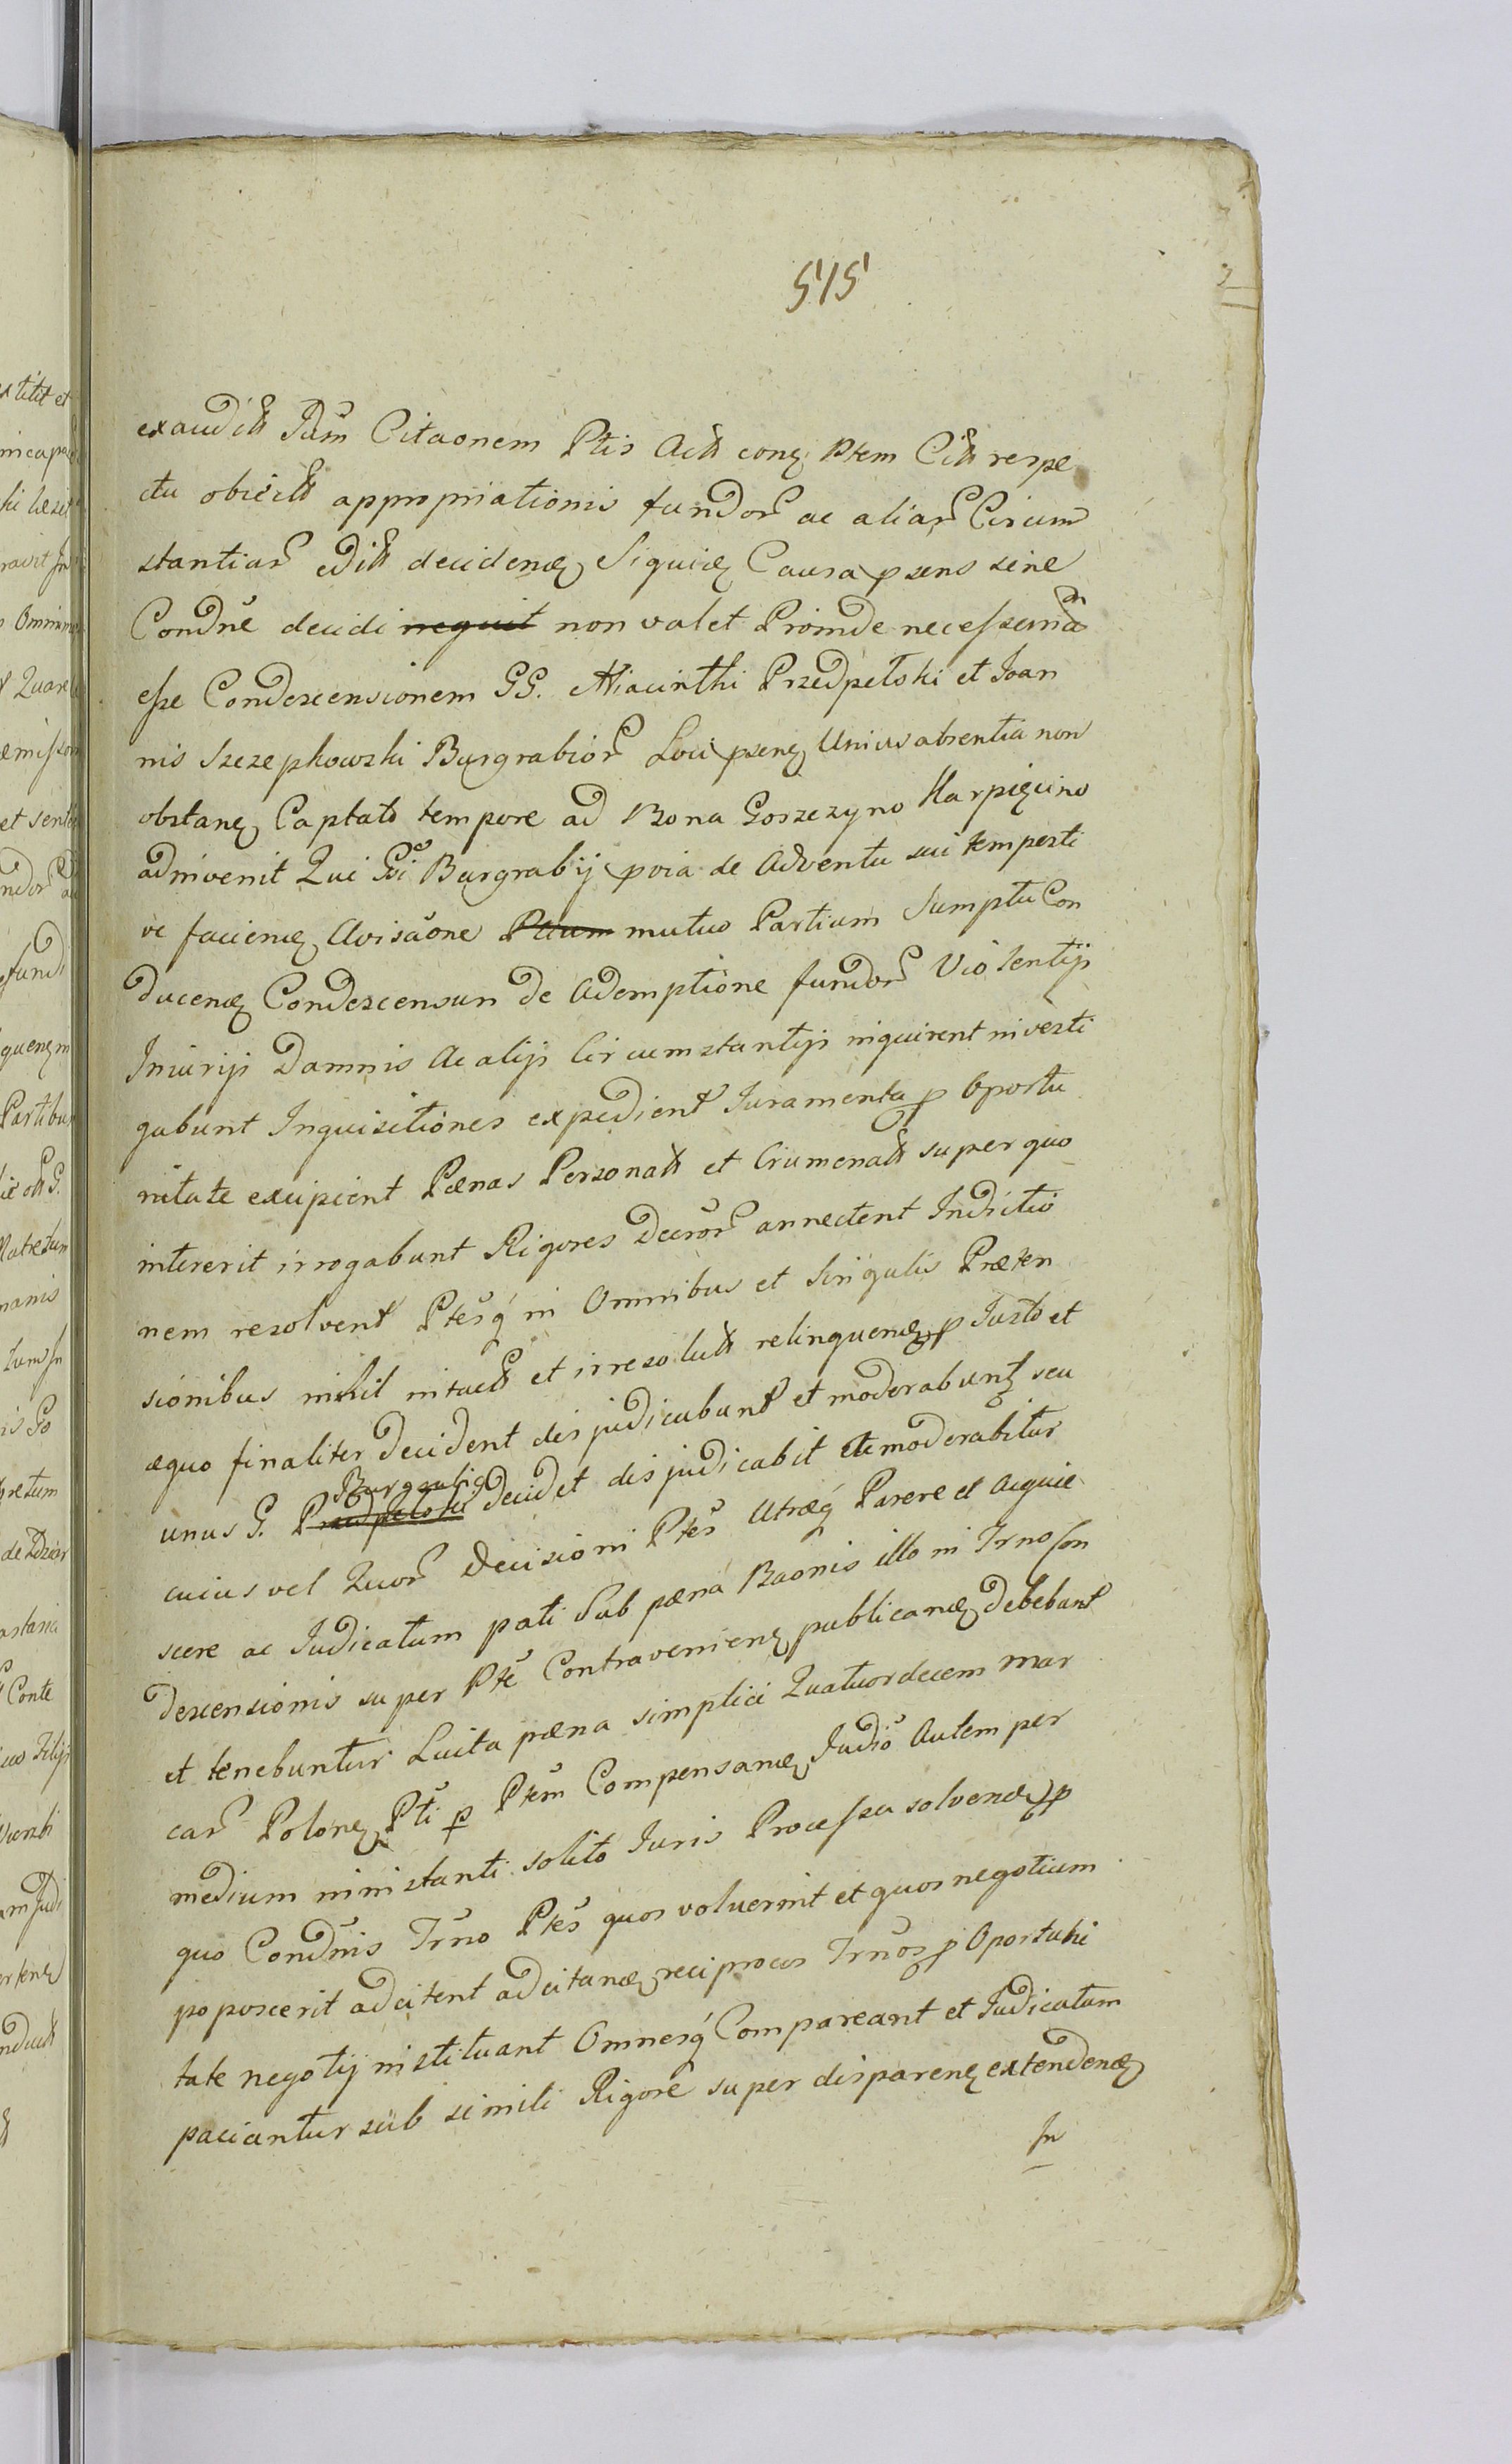 515
exaudita Jum Citaonem Ptis Actt conq Ptem Citt respe
ctu obiectt appropriationis fundor ac aliar Circum
stantiar editt decidenq Siquiq Causa psens sine
Condne decidi nequit non valet Proinde necessariam
esse Condescensionem GG. Hiacinthi Przedpełski et Joan
nis Szczepkowski Burgrabior Loci psenq Unius absentia non
obstanq Captato tempore ad Bona Goszczyno Karpięcino
adinvenit Qui Gsi Burgrabij pvia de Adventu sui tempesti
ve facienq Avisaone mutuo Partium Sumptu Con
ducenq Condescensuri de Ademptione fundor Violentijs
Injurijs Damnis Ac alijs Circumstantijs inquirent investi
gabunt Inquisitiones expedient Juramenta p Oportu
nitate excipient Pænas Personatt et Crumenatt super quo
intererit irrogabunt Rigores Decror annectent Indictio
nem resolvent Ptesq in Omnibus et Singulis Præten
sionibus nihil intactt et irresolutt relinquenq p Justo et
æquo finaliter decident disjudicabunt et moderabunt seu
unus G. Przedpelski Burgrabig decidet disjudicabit et moderabitur
cuius vel Quor Decisioni Ptes Utræq Parere et Acquie
scere ac Judicatum pati Sub pæna Baonis illo in Trno Con
descensionis super Pte Contravenienq publicanq debebunt
et tenebuntur Luita pæna simplici Quatuordecem Mar
car Polonq Pti p Ptem Compensanq Judio Autem per
medium in instanti solito Juris Processu solvenq p
quo Condnis Trno Ptes quos voluerint et quos negotium
poposcerit adcitent adcitanq reciprocos Trnos p Oportuni
tate negotij instituant Omnesq Compareant et Judicatum
paciantur sub simili Rigore super disparenq extendenq
In